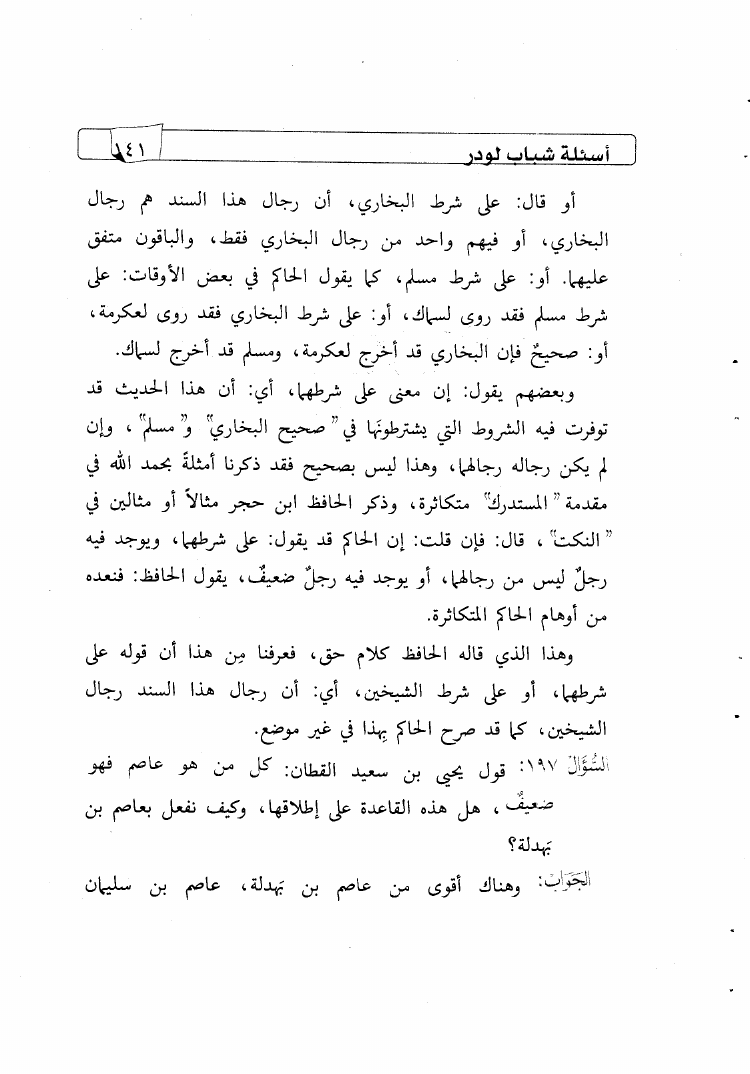 أسئلة شباب لودر
١٤١
أو قال: على شرط البخاري، أن رجال هذا السند هم رجال
البخاري، أو فيهم واحد من رجال البخاري فقط، والباقون متفق
عليهما. أو: على شرط مسلم، كما يقول الحاكم في بعض الأوقات: على
شرط مسلم فقد روى لسماك، أو: على شرط البخاري فقد روى لعكرمة،
أو: صحيحٌ فإن البخاري قد أخرج لعكرمة، ومسلم قد أخرج لسماك.
وبعضهم يقول: إن معنى على شرطهما، أي: أن هذا الحديث قد
توفرت فيه الشروط التي يشترطونَها في "صحيح البخاري" و"مسلم"، وإن
لم يكن رجاله رجالهما، وهذا ليس بصحيح فقد ذكرنا أمثلةً بحمد الله في
مقدمة "المستدرك" متكاثرة، وذكر الحافظ ابن حجر مثالاً أو مثالين في
"النكت"، قال: فإن قلت: إن الحاكم قد يقول: على شرطهما، ويوجد فيه
رجلٌ ليس من رجالهما، أو يوجد فيه رجلٌ ضعيفٌ، يقول الحافظ: فنعده
من أوهام الحاكم المتكاثرة.
وهذا الذي قاله الحافظ كلام حق، فعرفنا مِن هذا أن قوله على
شرطهما، أو على شرط الشيخين، أي: أن رجال هذا السند رجال
الشيخين، كما قد صرح الحاكم بِهذا في غير موضع.
السُّؤَالُ ١٩٧: قول يحيى بن سعيد القطان: كل من هو عاصم فهو
ضعيفٌ، هل هذه القاعدة على إطلاقها، وكيف نفعل بعاصم بن
بَهدلة؟
الجَوَابُ: وهناك أقوى من عاصم بن بَهدلة، عاصم بن سليمان